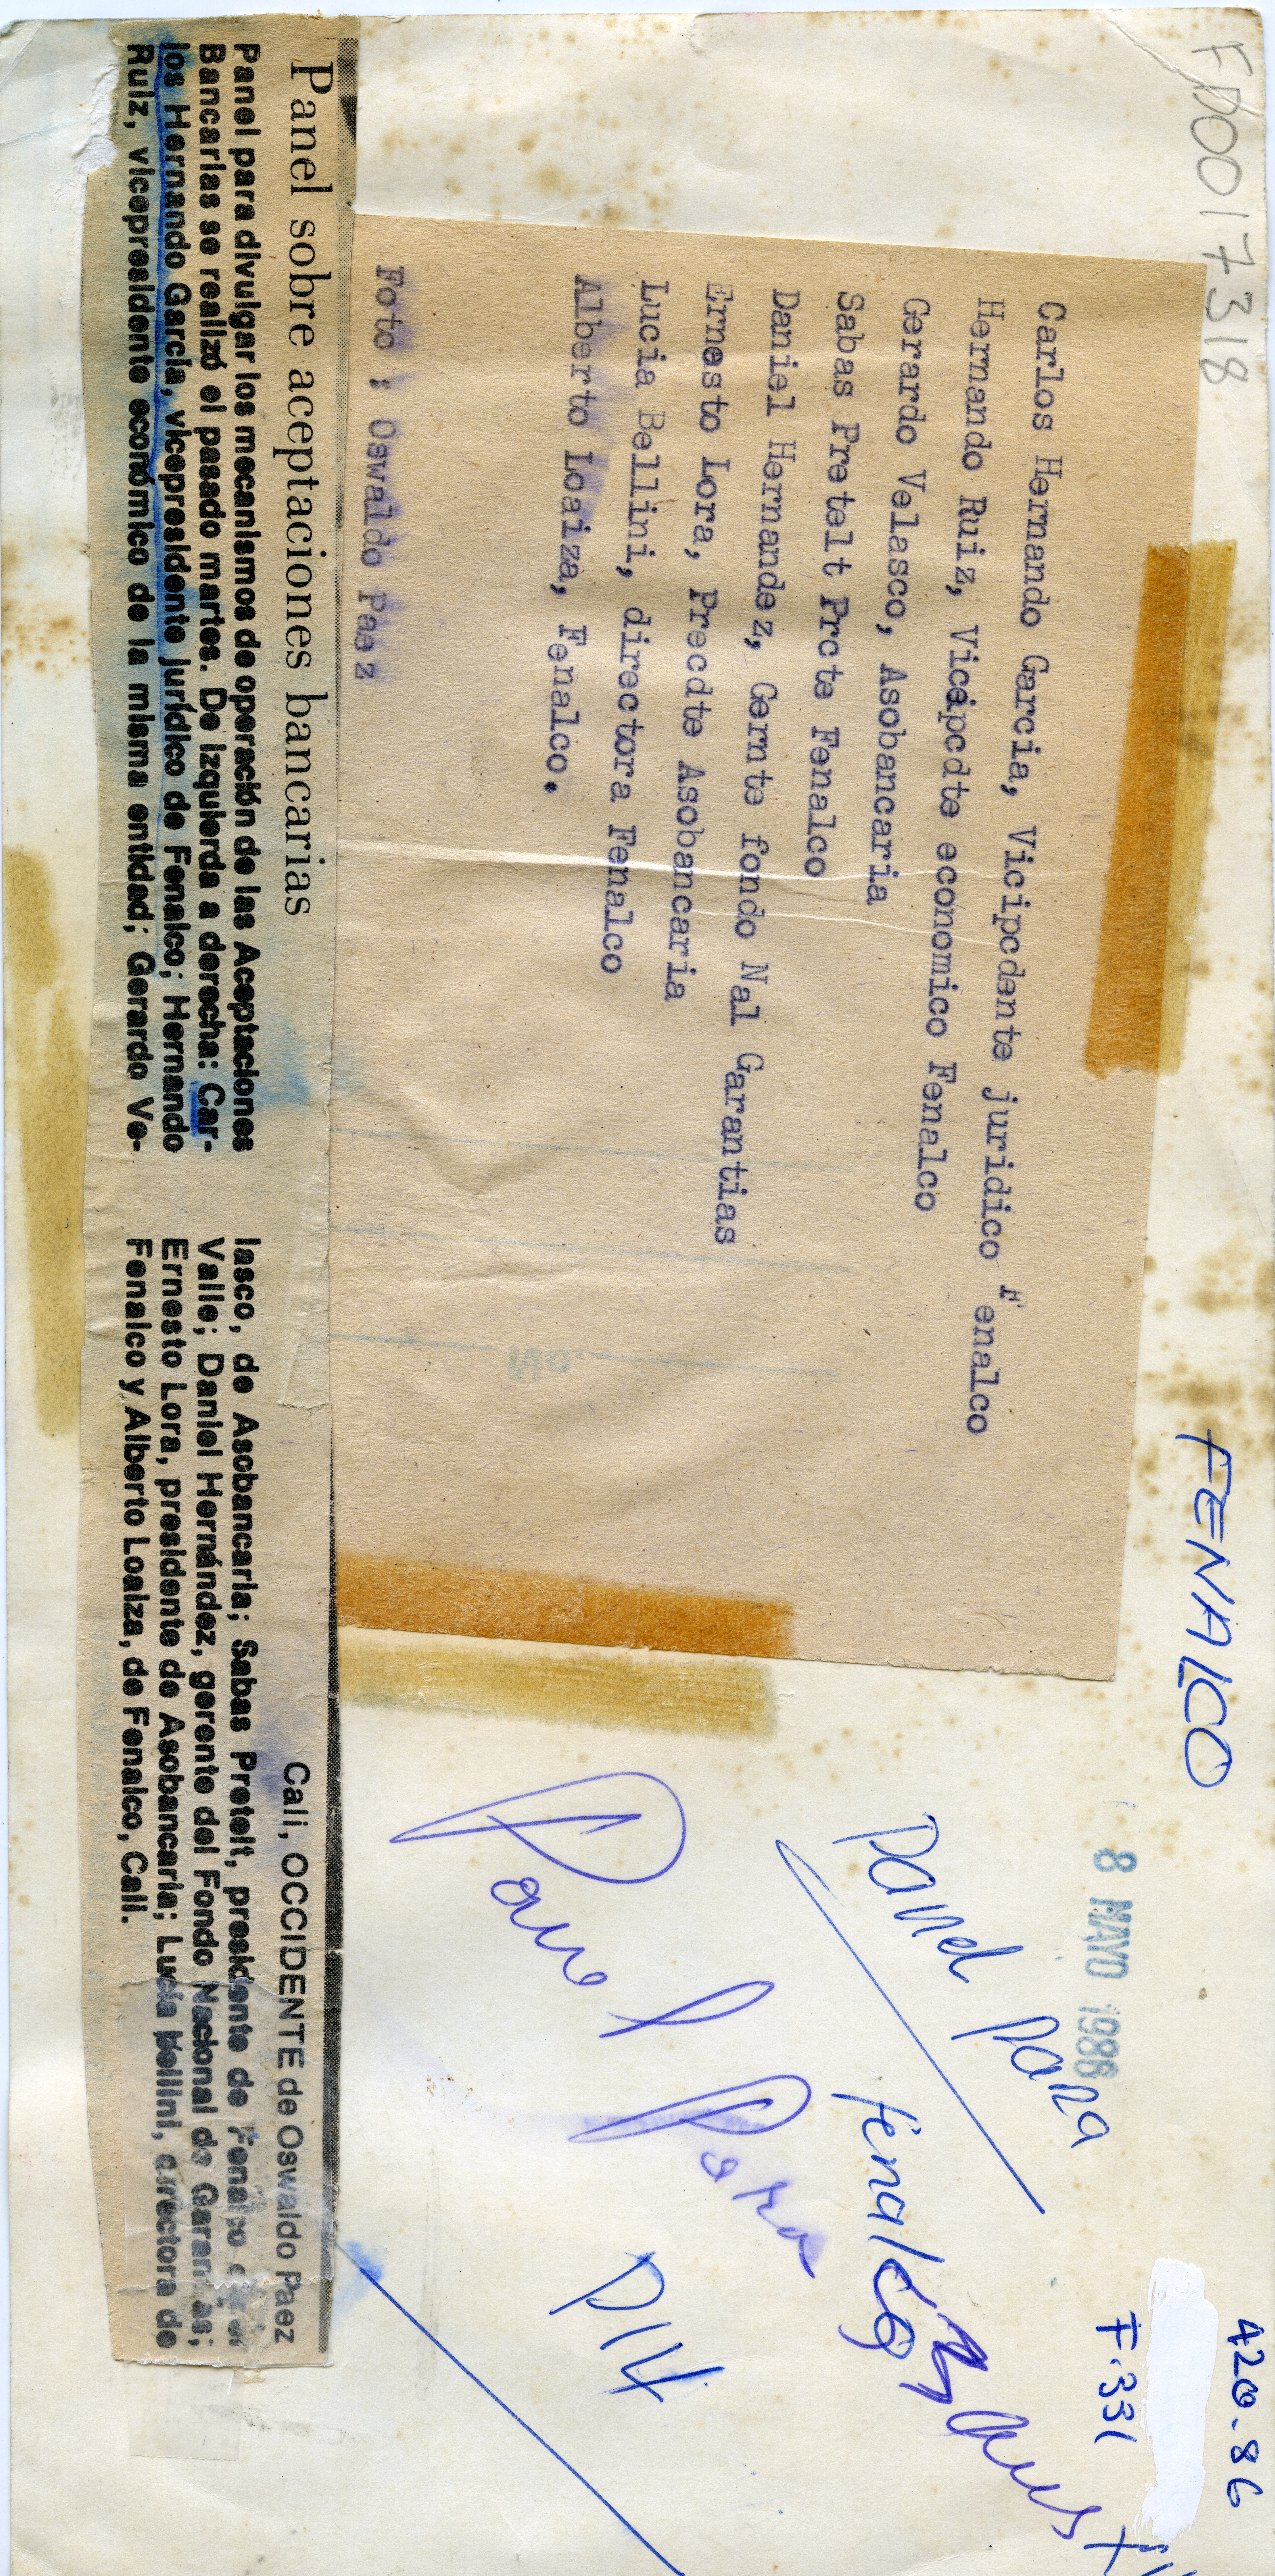 FD0017318
FENALCO
420-86
F.331
8 MAYO 1986
Carlos Hernando Garcia, Vicipcdente juridico Fenalco
Hernando Ruiz, Viceipcdte economico Fenalco
Gerardo Velasco, Asobancaria
Sabas Pretelt Prcte Fenalco
Daniel Hernandez, Gernte fondo Nal Garantias
Ernesto Lora, Precdte Asobancaria
Lucia Bellini, directora Fenalco
Alberto Loaiza, Fenalco.
Foto ; Oswaldo Paez
No.
Panel para
Fenalco
Panel para
Panel sobre aceptaciones bancarias
Cali, OCCIDENTE de Oswaldo Paez
Panel para divulgar los mecanismos de operación de las Aceptaciones
Bancarias se realizó el pasado martes. De izquierda a derecha: Car-
los Hernando García, vicepresidente jurídico de Fenalco; Hernando
Ruiz, vicepresidente económico de la misma entidad; Gerardo Ve-
lasco, de Asobancaria; Sabas Pretelt, presidente de Fenalco
Valle; Daniel Hernández, gerente del Fondo Nacional de Garantías;
Ernesto Lora, presidente de Asobancaria; Lucía Bellini, directora de
Fenalco y Alberto Loaiza, de Fenalco, Cali.